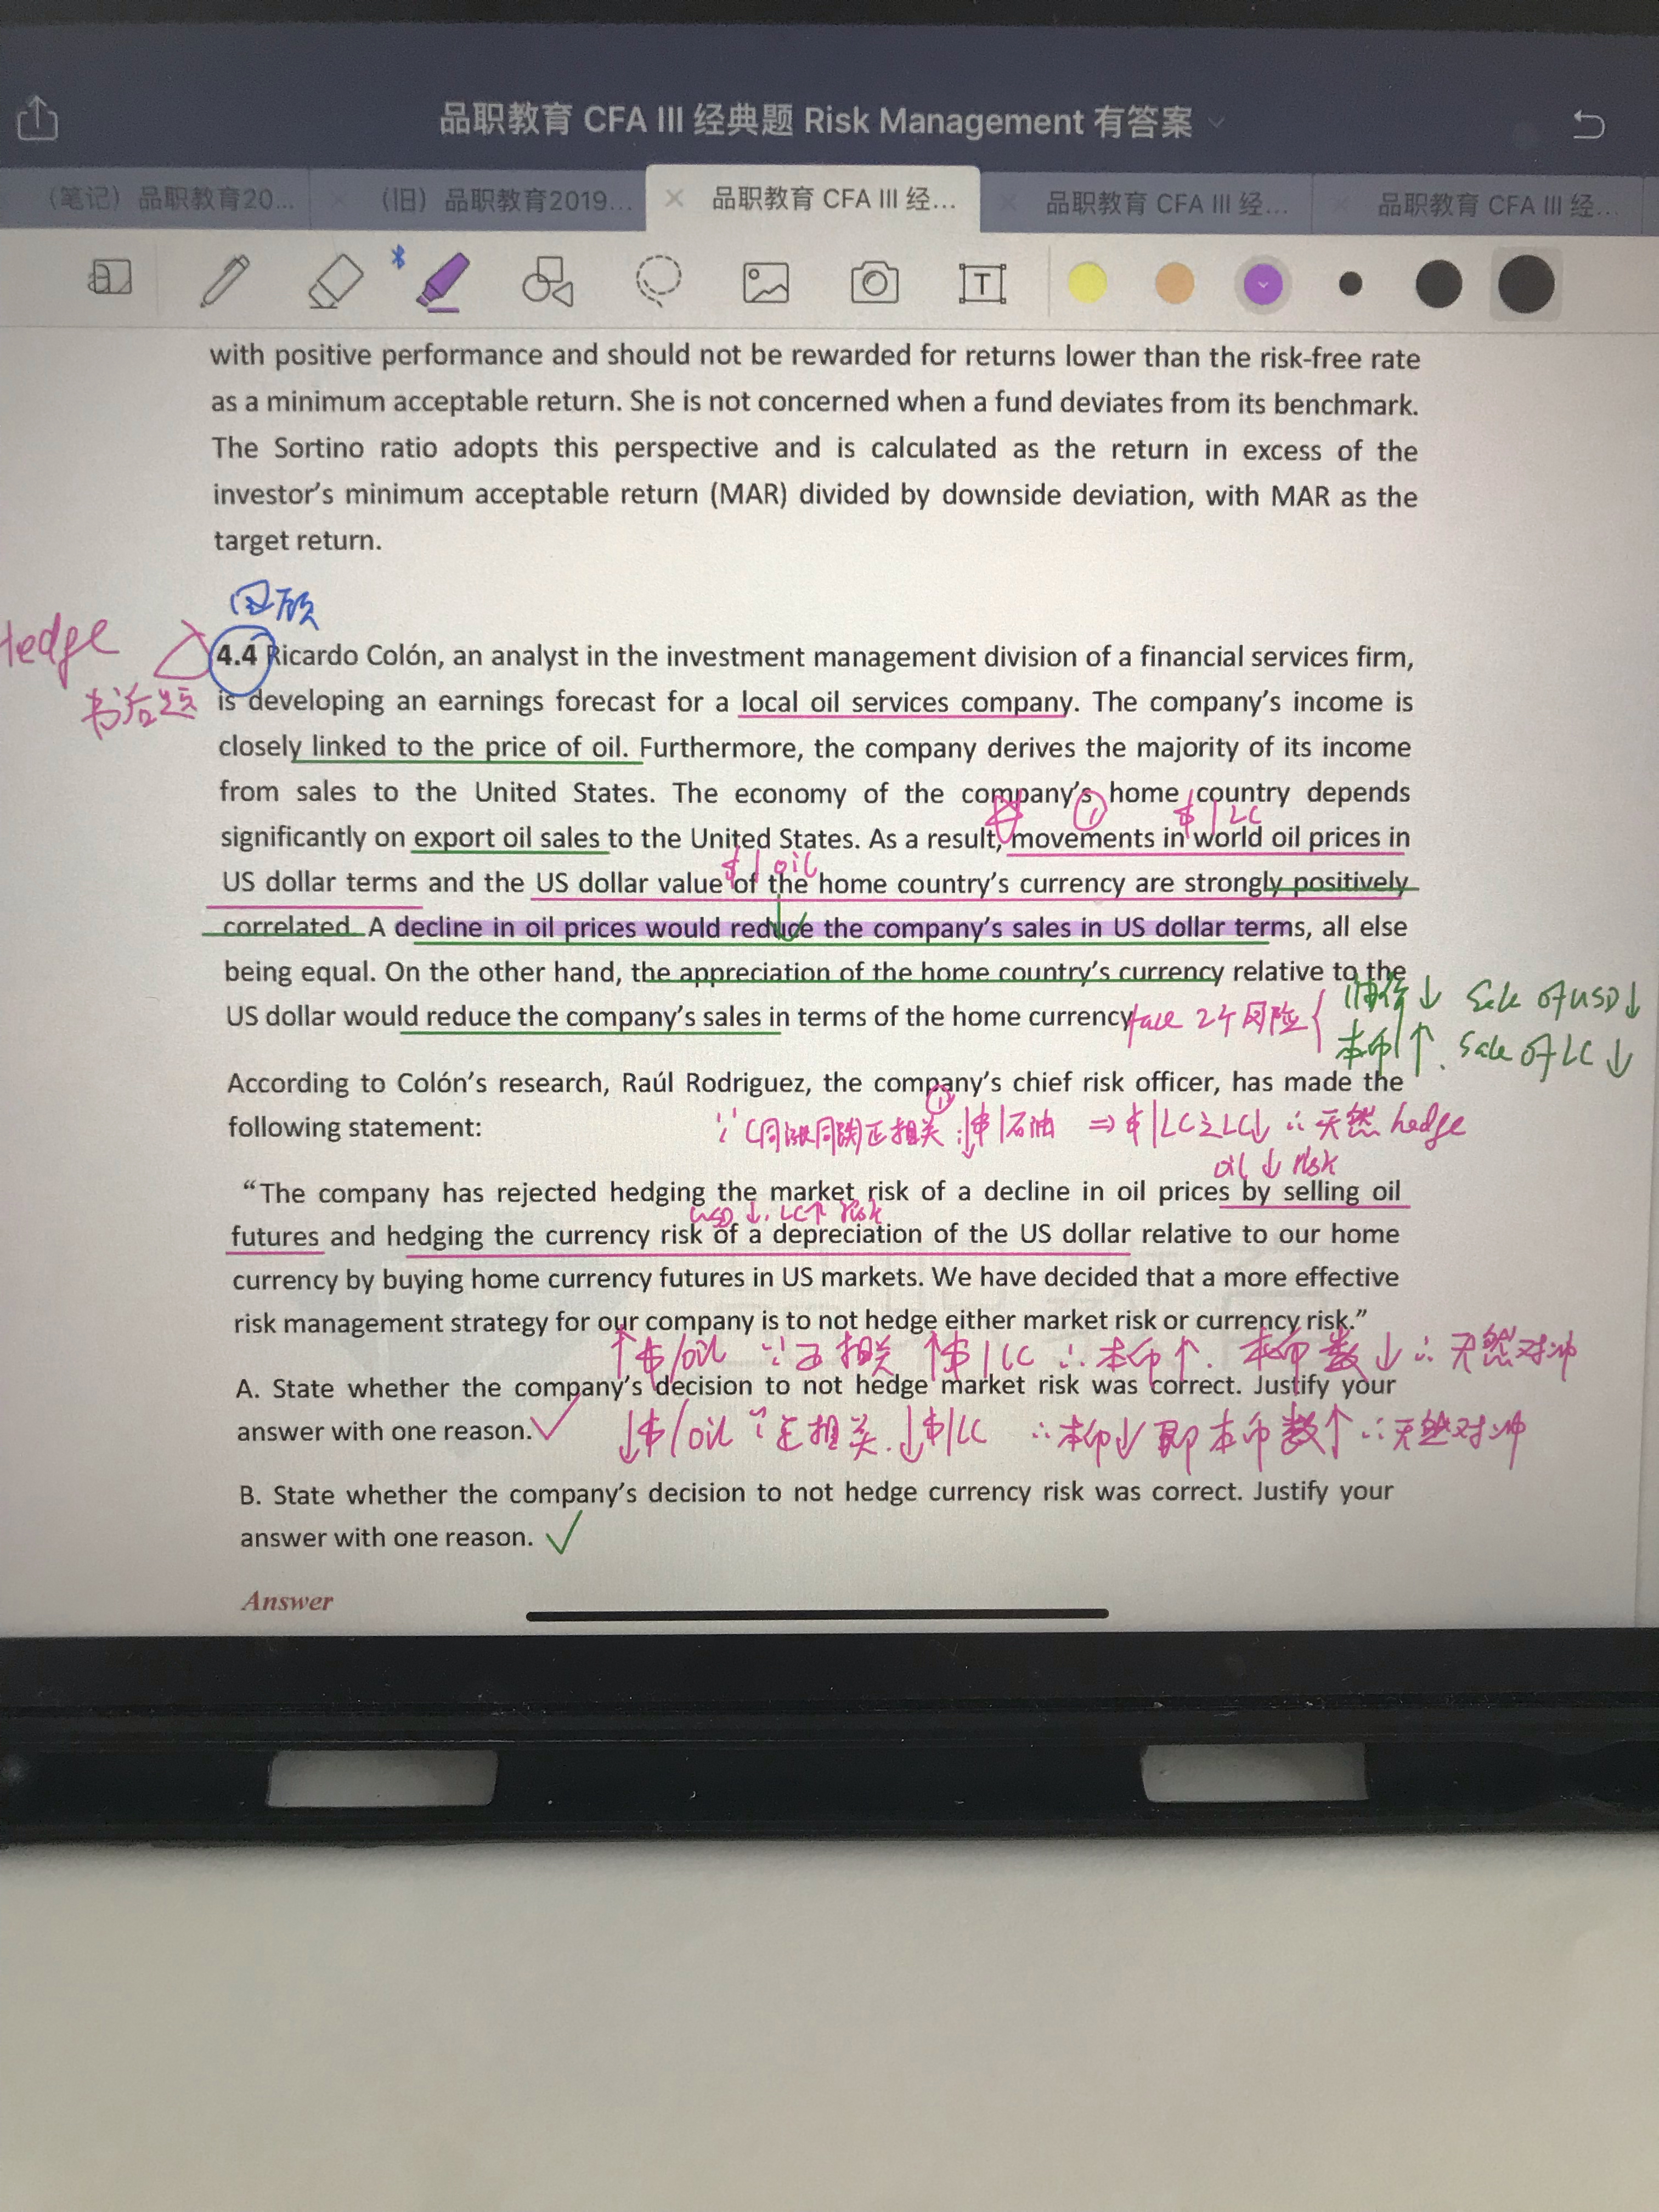 品职教育 CFA III 经典题 Risk Management 有答案
（笔记）品职教育20...
（旧）品职教育2019...
品职教育 CFA III 经...
品职教育 CFA III 经...
品职教育 CFA III 经...
with positive performance and should not be rewarded for returns lower than the risk-free rate
as a minimum acceptable return. She is not concerned when a fund deviates from its benchmark.
The Sortino ratio adopts this perspective and is calculated as the return in excess of the
investor's minimum acceptable return (MAR) divided by downside deviation, with MAR as the
target return.
回顾
Hedge
书后题
4.4 Ricardo Colón, an analyst in the investment management division of a financial services firm,
is developing an earnings forecast for a local oil services company. The company's income is
closely linked to the price of oil. Furthermore, the company derives the majority of its income
from sales to the United States. The economy of the company's home country depends
① $/LC
significantly on export oil sales to the United States. As a result, movements in world oil prices in
$/oil
US dollar terms and the US dollar value of the home country's currency are strongly positively
correlated. A decline in oil prices would reduce the company's sales in US dollar terms, all else
being equal. On the other hand, the appreciation of the home country's currency relative to the
US dollar would reduce the company's sales in terms of the home currency
face 2个风险
油价↓ Sale of USD↓
本币↑. Sale of LC↓
According to Colón's research, Raúl Rodriguez, the company's chief risk officer, has made the
following statement:
∵ ①同涨同跌正相关 ∴↓$/石油 ⇒ $/LC之LC↓ ∴天然hedge
oil ↓ risk
"The company has rejected hedging the market risk of a decline in oil prices by selling oil
USD ↓. LC↑ risk
futures and hedging the currency risk of a depreciation of the US dollar relative to our home
currency by buying home currency futures in US markets. We have decided that a more effective
risk management strategy for our company is to not hedge either market risk or currency risk."
↑$/oil ∵正相关 ↑$/LC ∴本币↑. 本币数↓∴天然对冲
A. State whether the company's decision to not hedge market risk was correct. Justify your
answer with one reason.
↓$/oil ∵正相关.↓$/LC ∴本币↓即本币数↑∴天然对冲
B. State whether the company's decision to not hedge currency risk was correct. Justify your
answer with one reason.
Answer